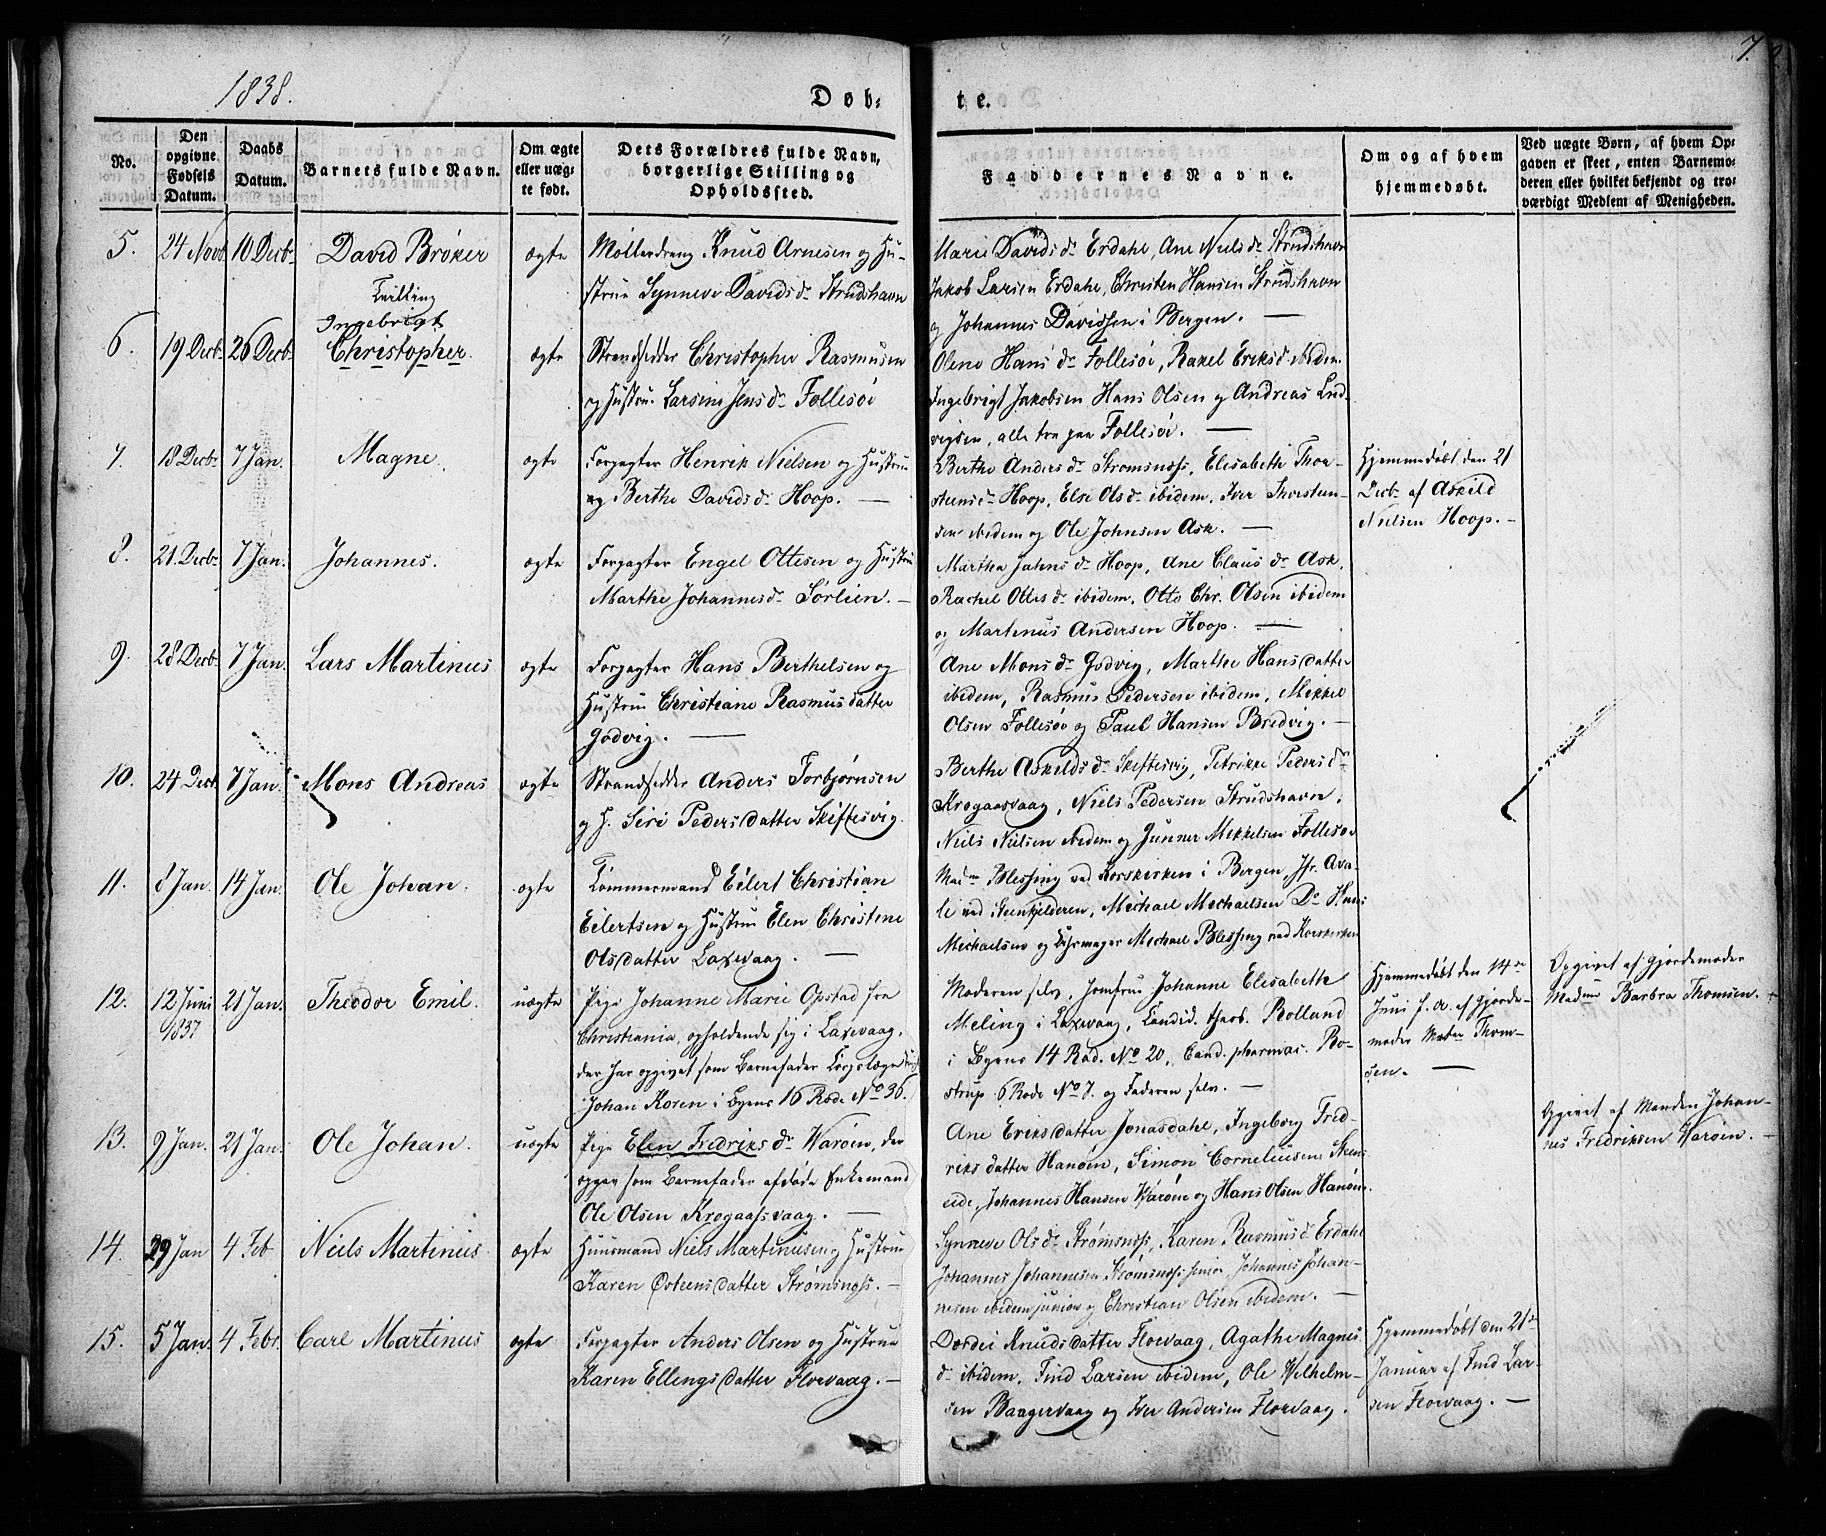 1838.
Døb-
te.
7.
No.
Den
opgivne
Fødsels
Datum.
Daabs
Datum.
Barnets fulde Navn.
Om ægte
eller uæg-
te født.
Dets Forældres fulde Navn,
borgerlige Stilling og
Opholdssted.
Faddernes Navne.
Om og af hvem
hjemmedøbt.
Ved uægte Børn, af hvem Op-
gaven er skeet, enten Barnemo-
deren eller hvilket bekjendt og tro-
værdigt Medlem af Menigheden.
5. 24 Novb. 10 Decbr David Brøker ægte
Tvilling
Møllerdreng Knud Arnesen og Hu-
strue Synneve Davids dr Strudshavn
Marie Davids dr Erdahl, Ane Niels dr Strudshavn
Jakob Larsen Erdahl, Christen Hansen Strudshavn
og Johannes Davidsen i Bergen. —
6. 19 Decb. 26 Decb. Ingebrigt
Christopher. ægte
Strandsidder Christopher Rasmusen
og Hustrue Larsine Jens dr Follesøe
Olene Hans dr Follesøe, Rakel Eriks d. ibidem.
Ingebrigt Jakobsen Hans Olsen og Andreas Lud-
vigsen, alle tre paa Follesøe. —
7. 18 Decbr 7 Jan. Magne. ægte
Forpagter Henrik Nielsen og Hustrue
og Berthe Davids dr Hoop. —
Berthe Anders dr Stromsnæss, Elisabeth Thor-
steens dr Hoop, Else Ols dr ibidem, Iver Thorsteen-
sen ibidem og Ole Johnsen Ask. —
Hjemmedøbt den 21
Decbr af Askild
Nielsen Hoop. —
8. 21 Decbr 7 Jan. Johannes. ægte
Forpagter Engel Ottesen og Hustrue
Marthe Johannes dr Sørlien. —
Martha Jahns dr Hoop, Ane Claus dr Ask,
Rachel Ottes dr ibidem, Otto Chr. Olsen ibidem
og Martinus Andersen Hoop. —
9. 28 Decb. 7 Jan. Lars Martinus ægte
Forpagter Hans Berthelsen og
Hustrue Christiane Rasmusdatter
Godvig. —
Ane Mons dr Godvig, Marthe Hansdatter
ibidem, Rasmus Pedersen ibidem, Mikkel
Olsen Follesøe og Paul Hansen Bredvig. —
10. 24 Decb. 7 Jan. Mons Andreas ægte
Strandsidder Anders Torbjørnsen
og H. Siri Pedersdatter Skiftesvig.
Berthe Askilds dr Skiftesvig, Petrikke Peders dr
Krogaasvaag, Niels Pedersen Strudshavn,
Niels Nielsen ibidem og Gunner Mikkelsen Follesøe
11. 8 Jan. 14 Jan. Ole Johan. ægte
Tømmermand Eilert Christian
Eilertsen og Hustrue Elen Christine
Olsdatter Laxevaag. —
Madm Blessing ved Korskirken i Bergen, Jfr. Ava-
li ved Steenkjelderen, Michael Michaelsen Do Hans
Michaelsen og Uhrmager Michael Blessing ved Korskirken
12. 12 Juni
1837 21 Jan. Theodor Emil. uægte
Pige Johanne Marie Opstad fra
Christiania, opholdende sig i Laxevaag,
der har opgivet som Barnefader Corpslæge
Johan Koren i Byens 16 Rode No 36.
Moderen selv, Jomfrue Johanne Elisabeth
Meling i Laxevaag, Candid. theol. Rolland
i Byens 14 Rod. No 20, Cand. pharmac. Ro-
strup 6 Rode No 7. og Faderen selv. —
Hjemmedøbt den 14de
Juni f. A. af Gjorde-
moder Madm Thom-
sen. —
Opgivet af Gjordemoder
Madme Barbra Thomsen. —
13. 9 Jan. 21 Jan. Ole Johan. uægte
Pige Elen Fredriks dr Warøen, der
opgav som Barnefader afdøde Enkemand
Ole Olsen Krogaasvaag. —
Ane Eriksdatter Jonasdahl, Ingeborg Fred-
riksdatter Hanøen, Simon Corneliusen Steens
eide, Johannes Hansen Warøen og Hans Olsen Hanøen.
Opgivet af Manden Johan-
nes Fredriksen Warøen. —
14. 29 Jan 4 Feb Niels Martinus ægte
Huusmand Niels Martinusen og Hustrue
Karen Østeensdatter Strømsnæss. —
Synneve Ols dr Strømsnæss, Karen Rasmus d. Erdahl
Johannes Johannesen Strømsnæss senior, Johannes Johan-
nesen ibidem junior og Christian Olsen ibidem. —
15. 5 Jan. 4 Febr. Carl Martinus ægte
Forpagter Anders Olsen og Hustrue
Karen Ellingsdatter Florvaag. —
Dordei Knudsdatter Florvaag, Agathe Magnes
dr ibidem, Find Larsen ibidem, Ole Wilhelm-
sen Baagervaag og Iver Andersen Florvaag.
Hjemmedøbt den 21de
Januar af Find Lar-
sen Florvaag. —